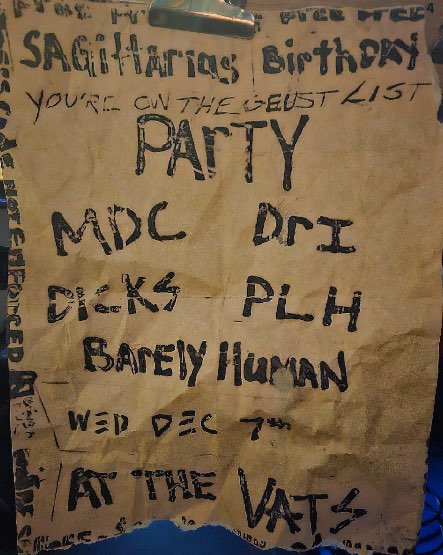 Free Free Free
SAGittArias BirthDAY
YOU'RE ON THE GEUST LIST
PArTY
MDC DrI
DICKS PLH
BArELY HUMAN
WED DEC 7th
AT THE VATS